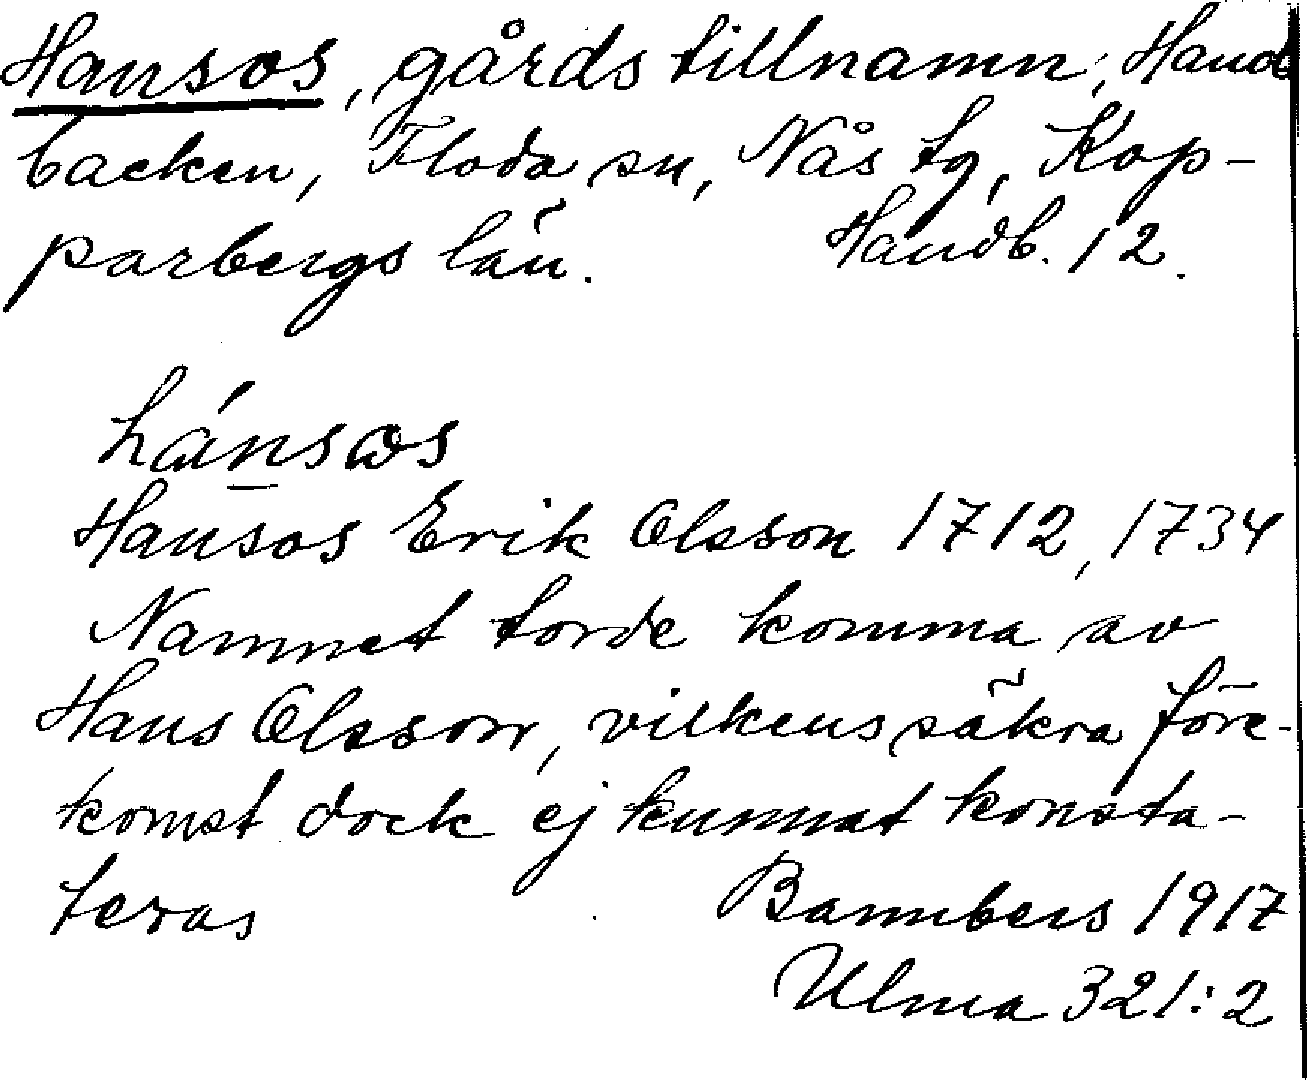 Hansos, gårdstillnamn; Hand
backen, Floda sn, Nås tg, Kop-
parbergs län. Handb. 12.
hánsꞷs
Hansos Erik Olsson 1712, 1734
Namnet torde komma av
Hans Olsson, vilkens säkra före-
komst dock ej kunnat konsta-
teras Bannbers 1917
Ulma 321:2